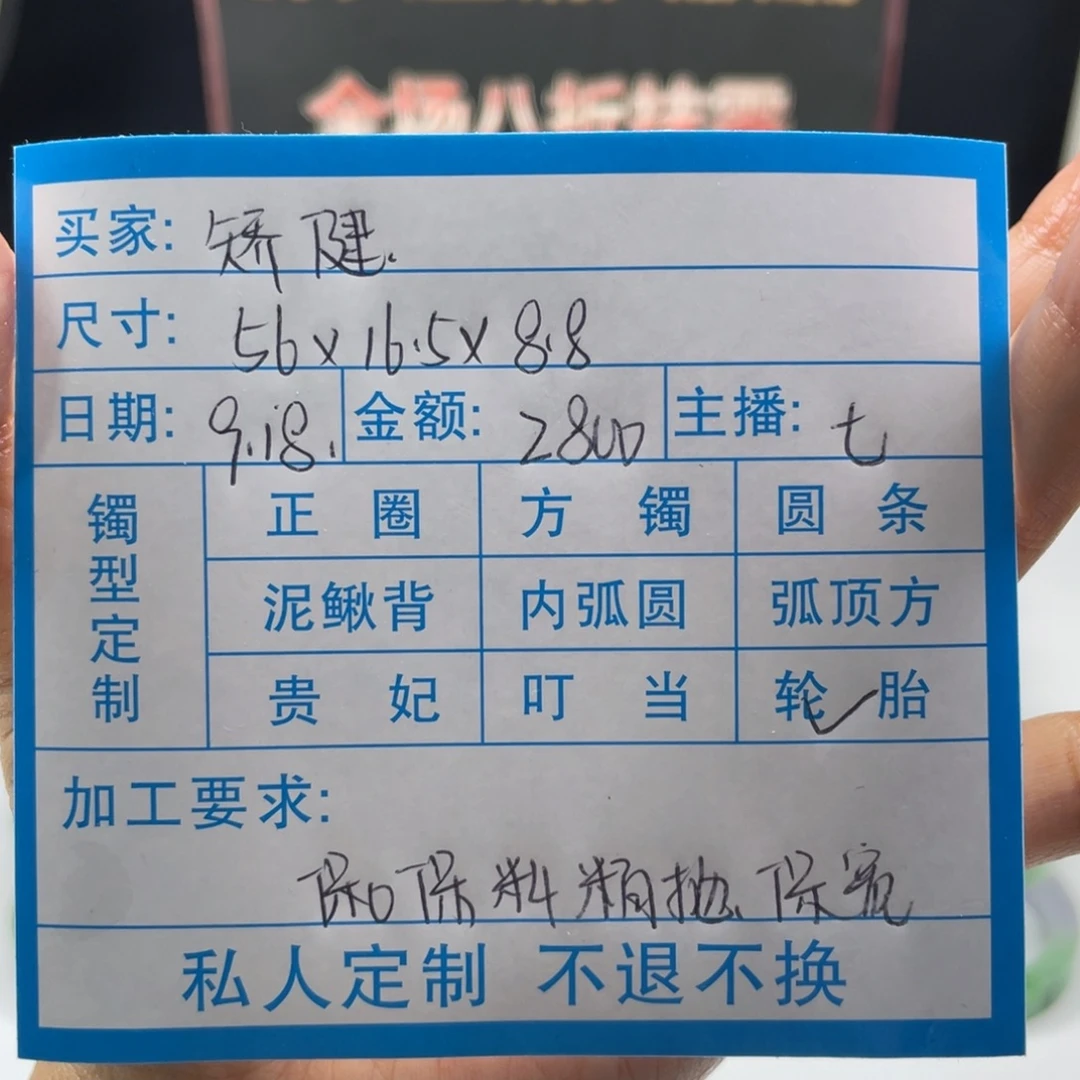 全场八折
买家: 矫健.
尺寸: 56×16.5×8.8
日期: 9.18. 金额: 2800 主播: 七
镯型定制
正圈 方镯 圆条
泥鳅背 内弧圆 弧顶方
贵妃 叮当 轮✓胎
加工要求:
保料精抛、保宽
私人定制 不退不换